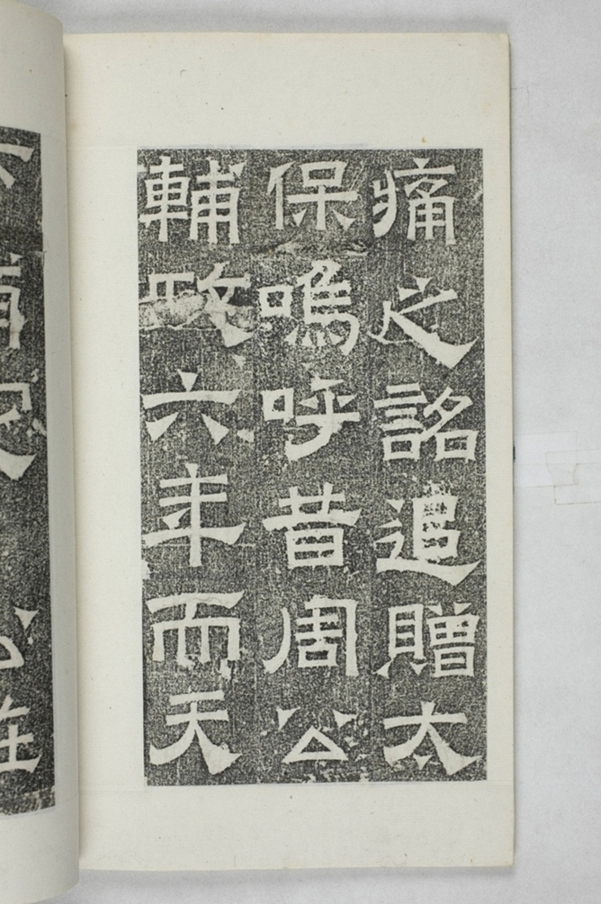 痛之詺追贈太
保嗚呼昔周公
輔政六年而天